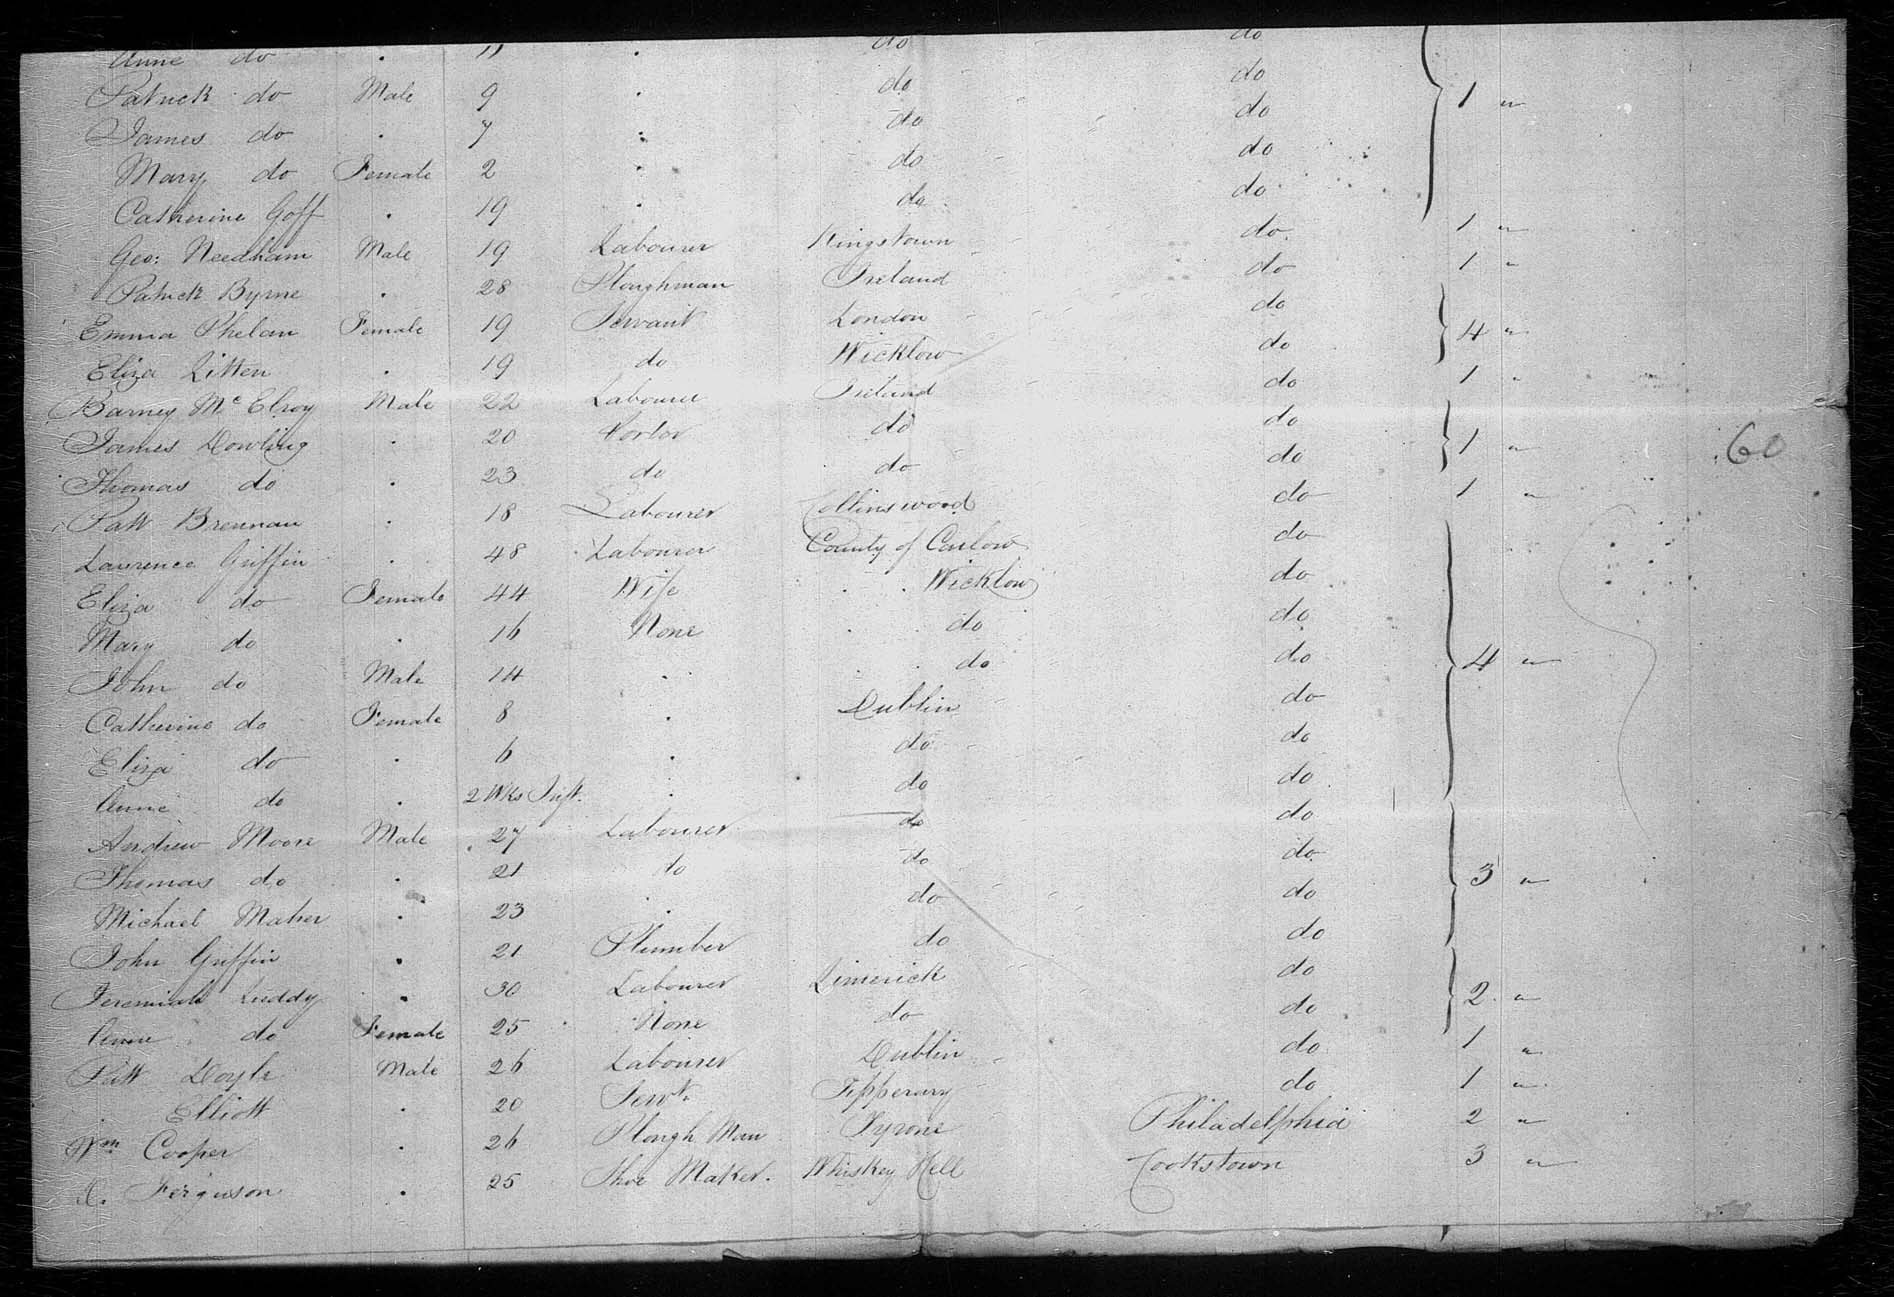 Anne do " 11 " do do
Patrick do Male 9 " do do 1 "
James do " 7 " do do
Mary do Female 2 " do do
Catherine Goff " 19 " do do
Geo: Needham Male 19 Labourer Kingstown do 1 "
Patrick Byrne " 28 Ploughman Ireland do 1 "
Emma Phelan Female 19 Servant London do 4 "
Eliza Litten " 19 do Wicklow do
Barney Mc Elroy Male 22 Labourer Ireland do 1 "
James Dowling " 20 Porter do do 1 "
Thomas do " 23 do do do
Patt Brennan " 18 Labourer Collinswood do 1 "
Lawrence Griffin " 48 Labourer County of Carlow do
Eliza do Female 44 Wife " " Wicklow do
Mary do " 16 None " do do
John do Male 14 " " do do 4 "
Catherine do Female 8 " Dublin do
Eliza do " 6 " do do
Anne do " 2 Wks Inft. " do do
Andrew Moore Male 27 Labourer do do
Thomas do " 21 do do do 3 "
Michael Maher " 23 " do do
John Griffin " 21 Plumber do do
Jeremiah Luddy " 30 Labourer Limerick do 2 "
Anne do Female 25 None do do
Patt Doyle Male 26 Labourer Dublin do 1 "
Elliott " 20 Servt. Tipperary do 1 "
Wm Cooper " 26 Plough Man Tyrone Philadelphia 2 "
Ferguson " 25 Shoe Maker. Whiskey Hill Cookstown 3 "
60